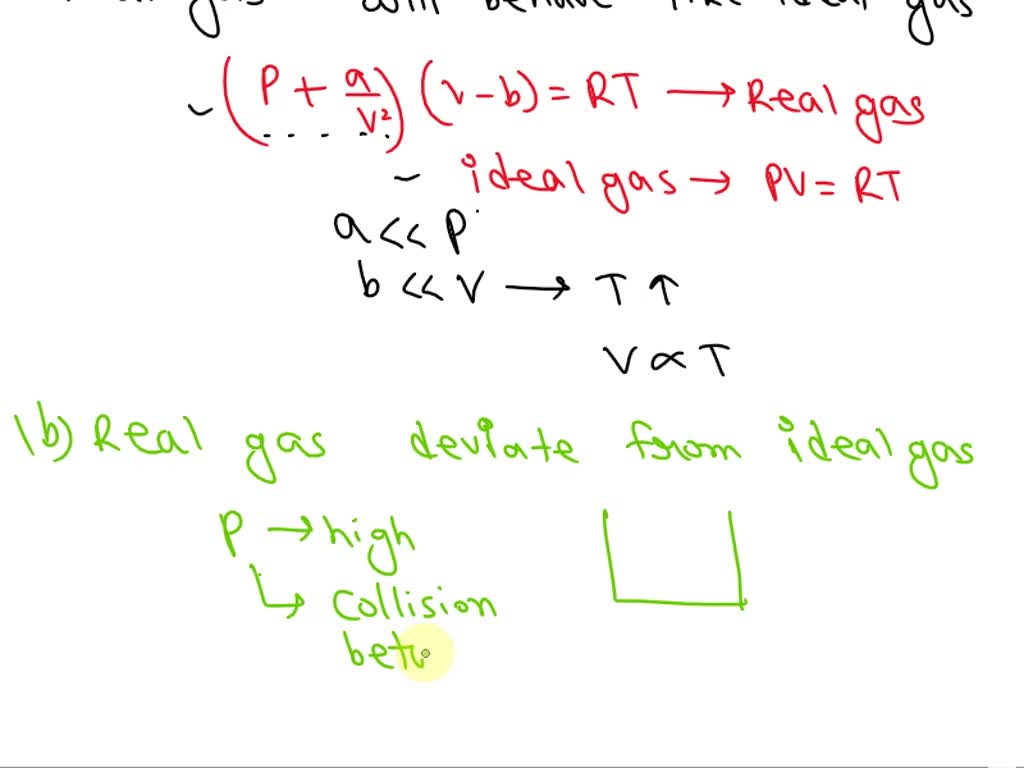 will behave like ideal gas
(P + a/V²) (V - b) = RT → Real gas
- ideal gas → PV = RT
a << P
b << V → T ↑
V ∝ T
(b) Real gas deviate from ideal gas
P → high
↳ Collision
betw